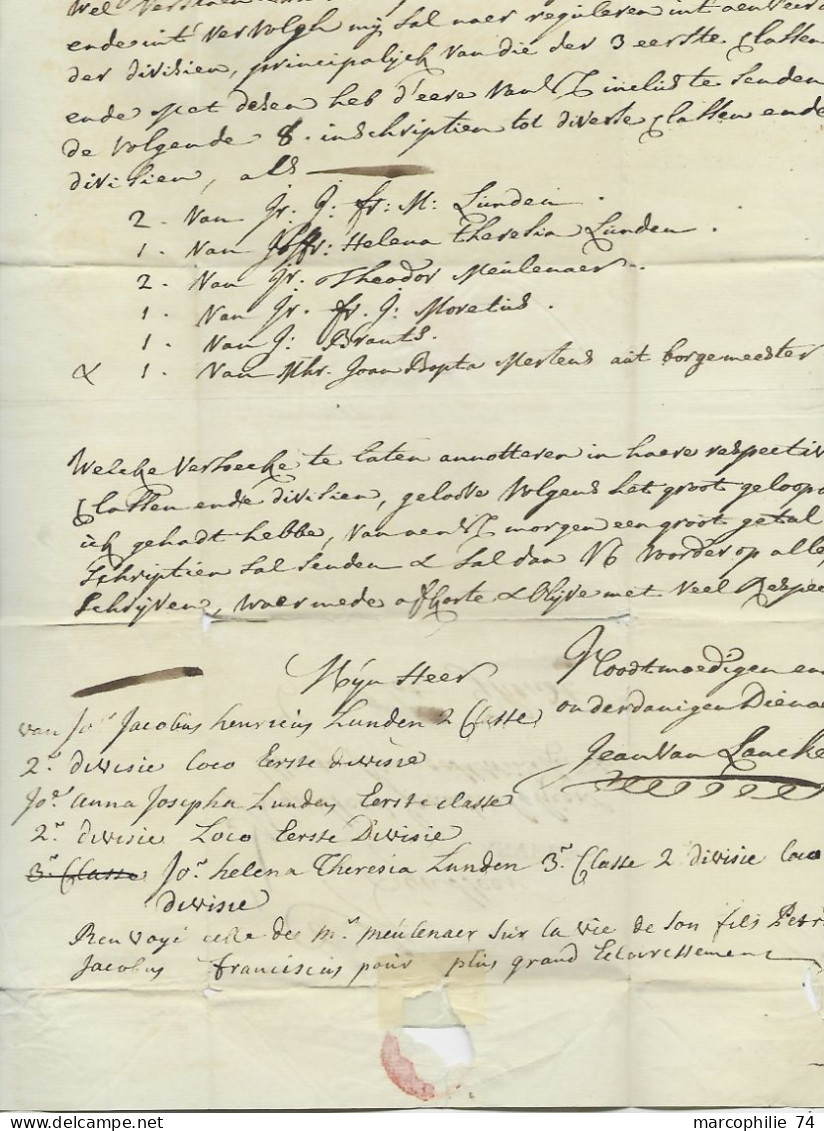 wel verstaen
ende int vervolgh mij sal naer reguleren int aenveerd
der divisien, principalijck van die der 3 eerste Classen
ende Met desen heb d'eere van inclus te senden
de volgende 8. inschriptien tot diverse Classen ende
divisien, als
2 - Van Jr: J: fr: M: Lunden
1 - Van Joffr: Helena Theresia Lunden
2 - Van Jr. Theodor Meulenaer
1 - Van Jr. fr. J: Moretus
1 - Van J: Brants
& 1 - Van Mhr. Joan Bapta Mertens aut borgemeester
Welcke versoecke te laten annotteren in haere respectiv
Classen ende divisien, geloove volgens het groot geloop d
ick gehadt hebbe, van aen morgen een groot getal
schriptien sal senden & sal dan Wb Worder op alles
schrijven, waermede afkorte & blijve met veel Respec
Mijn Heer
Oodtmoedigen en
onderdanigen Dienae
Jean Van Lancke
van Jor Jacobus henricus Lunden 2 Classe
2e divisie Loco Eerste divisie
Jor anna Josepha Lunden Eerste classe
2e divisie Loco Eerste Divisie
3e Classe Jor helena Theresia Lunden 3e Classe 2 divisie loco
divisie
Renvoyé celle de mr meulenaer sur la vie de son fils Petr
Jacobus franciscus pour plus grand Eclaircissement
marcophilie 74